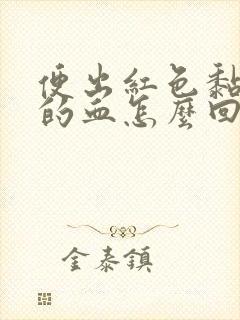 便出紅色黏
的血怎麼回
金泰鎮